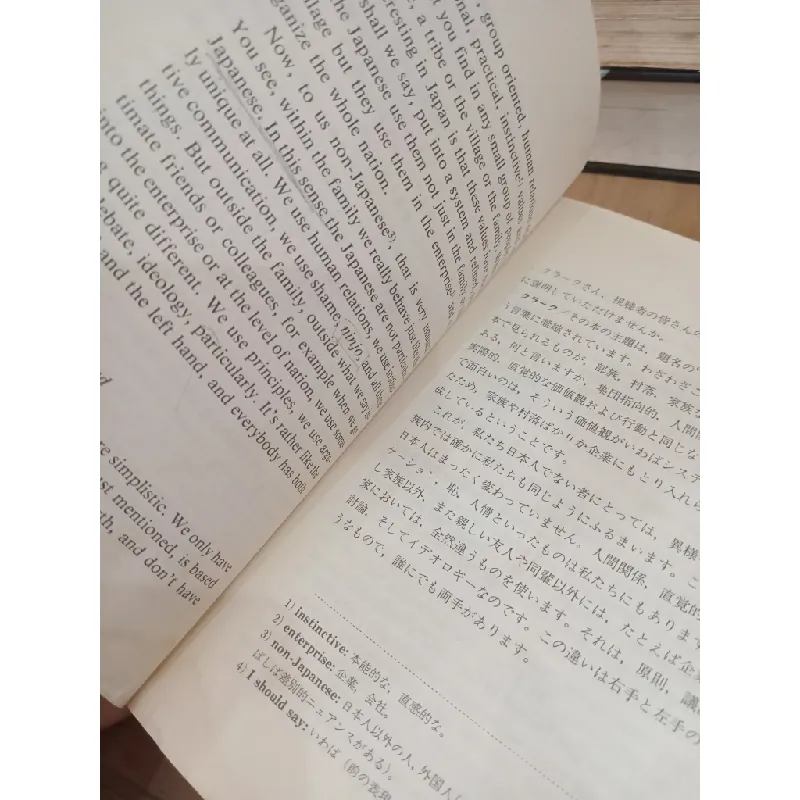 , group oriented, human relations
onal, practical, instinctive¹⁾ values and
t you find in any small group of people
e, a tribe or the village or the family.
eresting in Japan is that these values have
shall we say, put into a system and refined
e Japanese use them not just in the family or
lage but they use them in the enterprise²⁾ and
ganize the whole nation.
Now, to us non-Japanese³⁾, that is very
You see, within the family we really behave just like
Japanese. In this sense the Japanese are not particular
ly unique at all. We use human relations, we use
tive communication, we use shame, ninjo, and all
things. But outside the family, outside what we say
timate friends or colleagues, for example when we
into the enterprise or at the level of nation, we use
g quite different. We use principles, we use argu
debate, ideology, particularly. It's rather like the
and the left hand, and everybody has both
d
re simplistic. We only have
ust mentioned, is based
th, and don't have
クラークさん, 視聴者の皆さんの
に説明していただけませんか。
クラーク/その本の主題は, 題名の
う言葉に総括されています。わざわざこ
本で見られるものが, 部族, 村落, 家族
ある, 何と言いますか, 集団指向的, 人間
実際的, 直感的な価値観および行動と同じな
で面白いのは, そういう価値観がいわばシステ
ため, 家族や村落ばかりか企業にもとり入れら
成しているということです。
これが, 私たち日本人でない者にとっては, 異様
族内では確かに私たちも同じようにふるまいます。こ
日本人はまったく変わっていません。人間関係, 直覚的
ケーション, 恥, 人情といったものは私たちにもあります
し家族以外, また親しい友人や同輩以外には, たとえば企
家においては, 全然違うものを使います。それは, 原則, 議
討論, そしてイデオロギーなのです。この違いは右手と左手の
うなもので, 誰にでも両手があります。
1) instinctive: 本能的な, 直感的な。
2) enterprise: 企業, 会社。
3) non-Japanese: 日本人以外の人, 外国人
ばしば差別的ニュアンスがある)。
4) I should say: いわば (前の表現